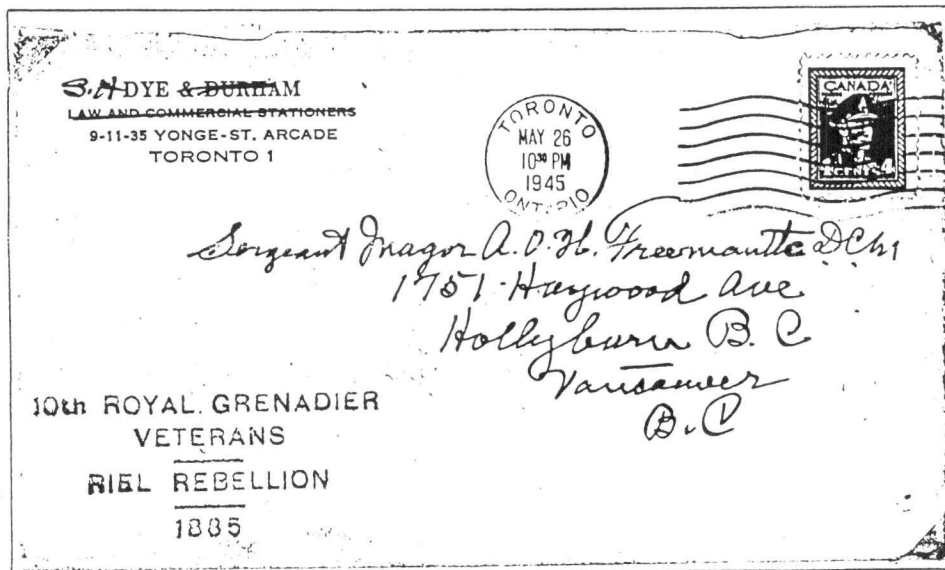 S.H DYE & DURHAM
LAW AND COMMERCIAL STATIONERS
9-11-35 YONGE-ST. ARCADE
TORONTO 1
TORONTO
MAY 26
10³⁰ PM
1945
ONTARIO
CANADA
4 CENTS 4
Sergeant Magor A. O. H. Freemantle DCM
1751 Haywood Ave
Hollyburn B. C
Vancouver
B. C
10th ROYAL. GRENADIER
VETERANS
RIEL REBELLION
1885